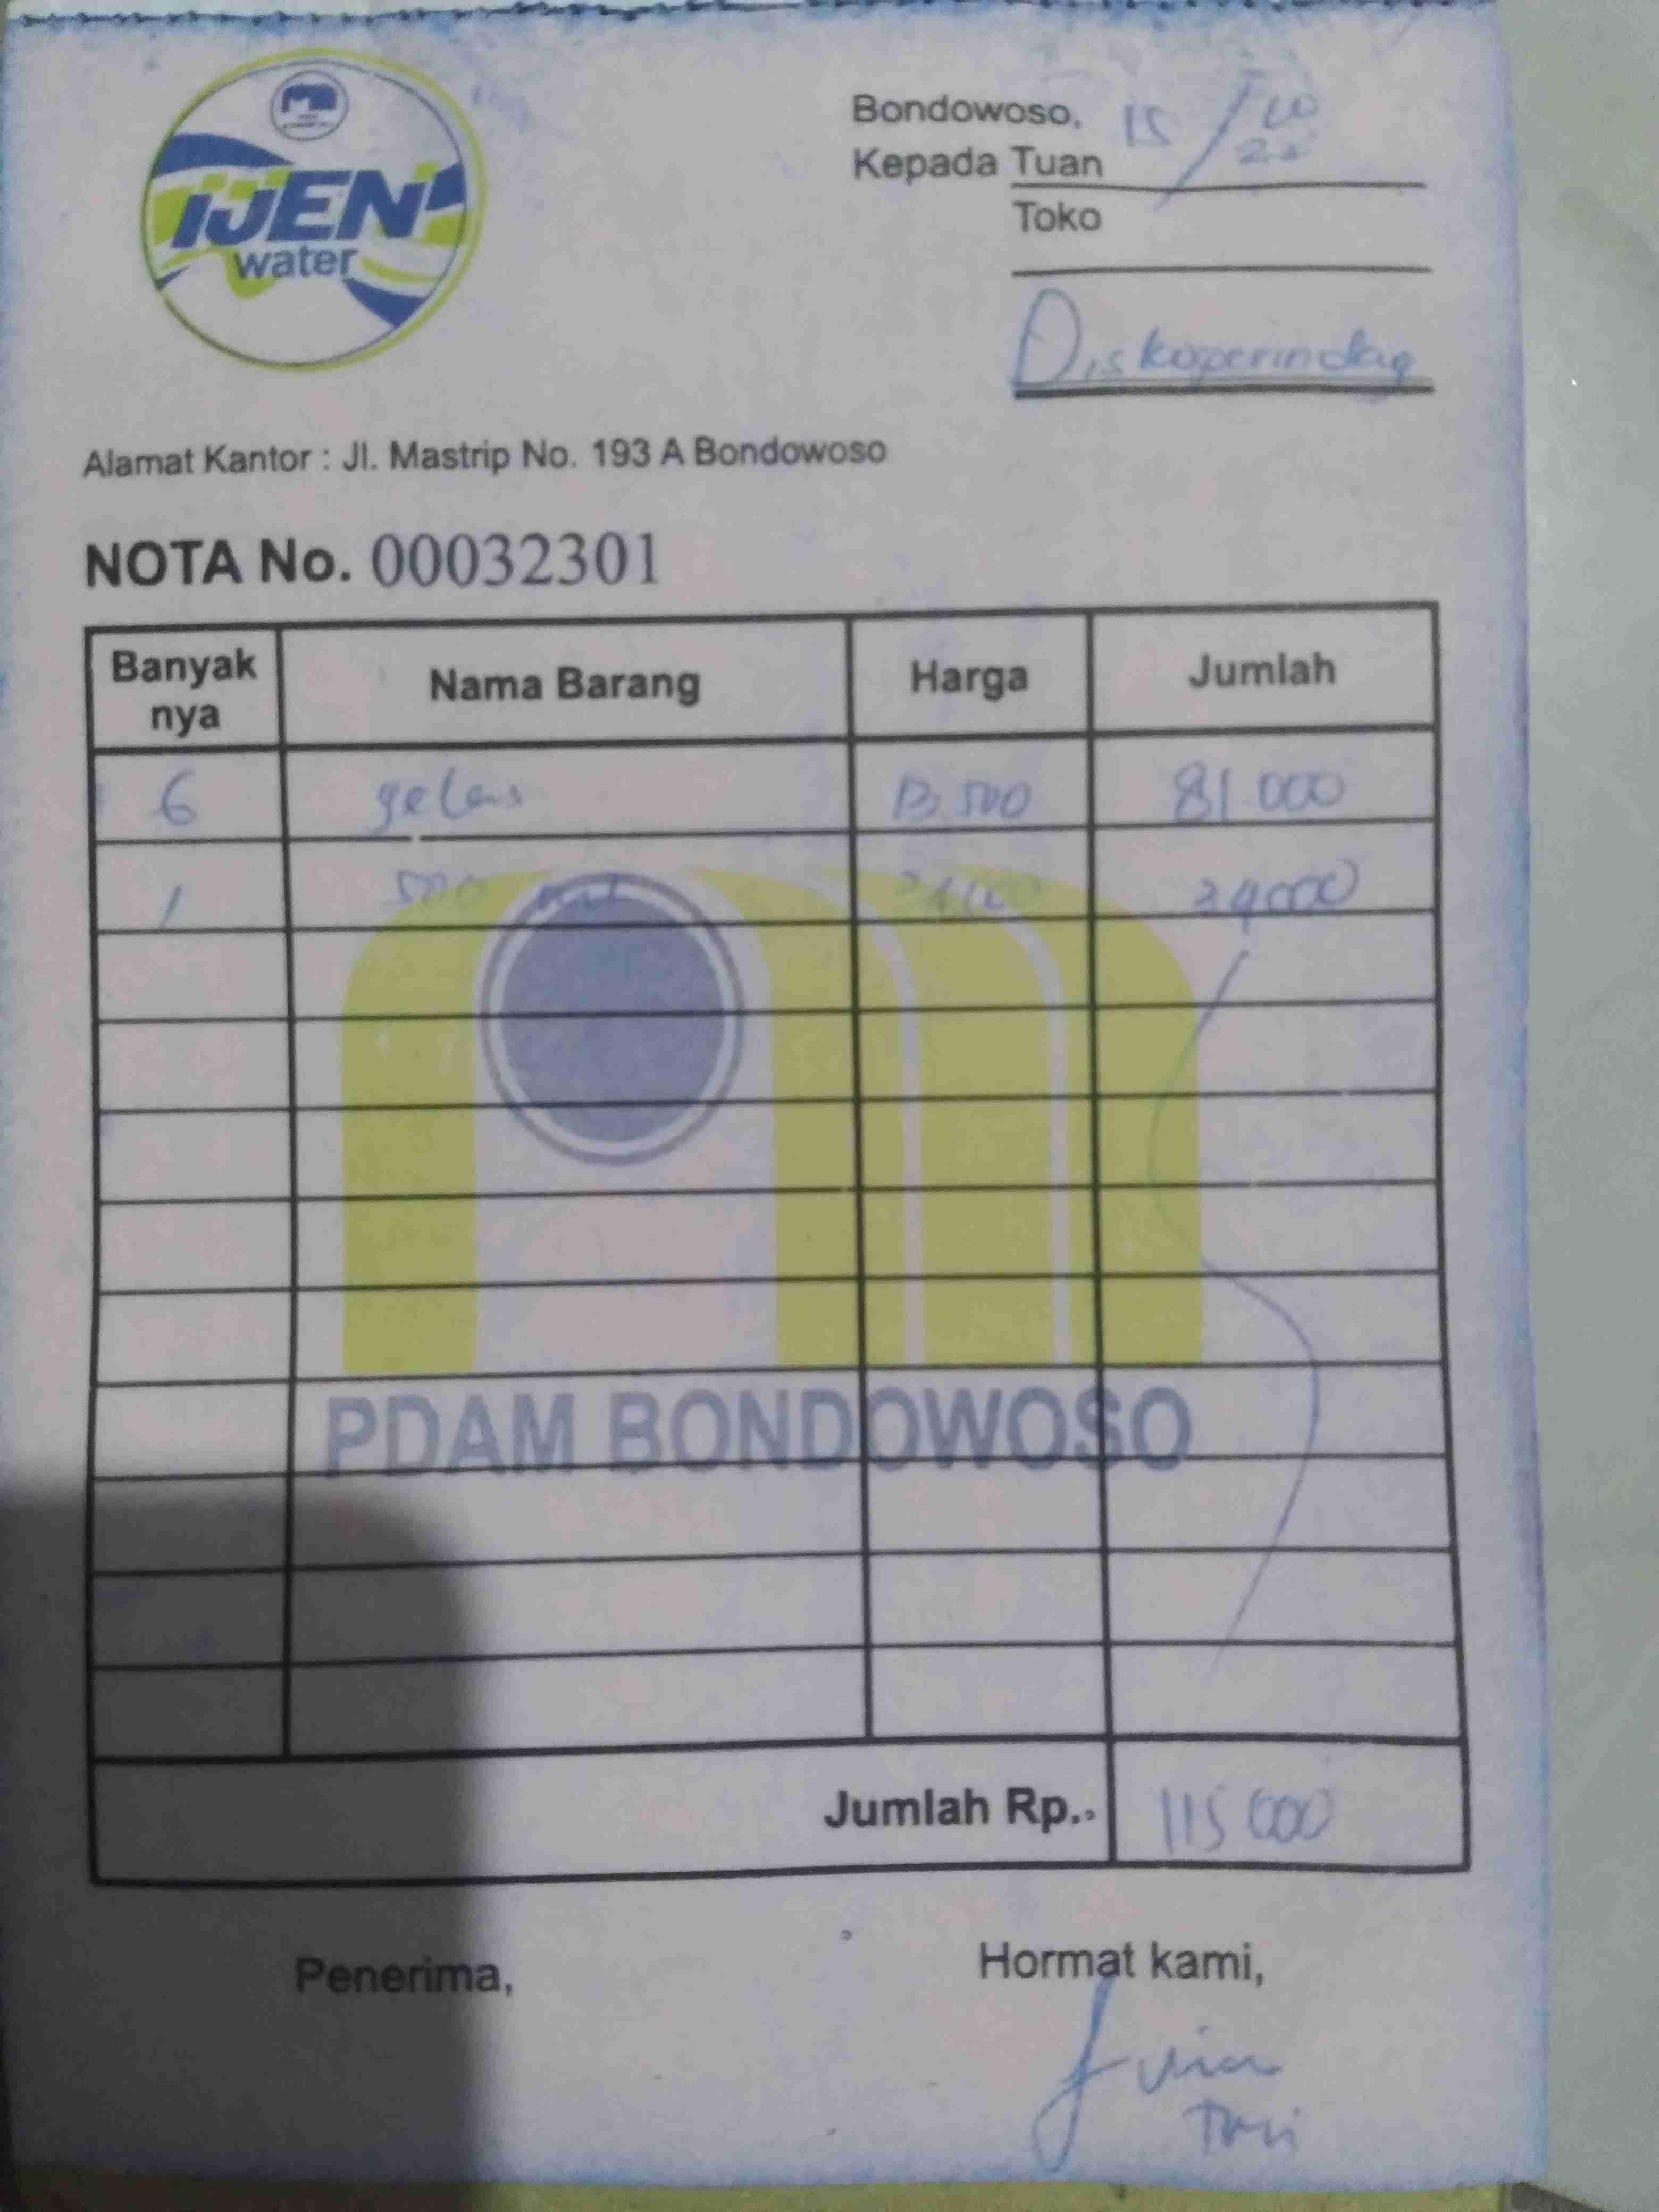 IJEN
water
Bondowoso, 15/10 22
Kepada Tuan
Toko
Diskoperindag
Alamat Kantor : Jl. Mastrip No. 193 A Bondowoso
NOTA No. 00032301
Banyak nya Nama Barang Harga Jumlah
6 gelas 13.500 81.000
1 500 ml 34000
PDAM BONDOWOSO
Jumlah Rp.. 115 000
Penerima,
Hormat kami,